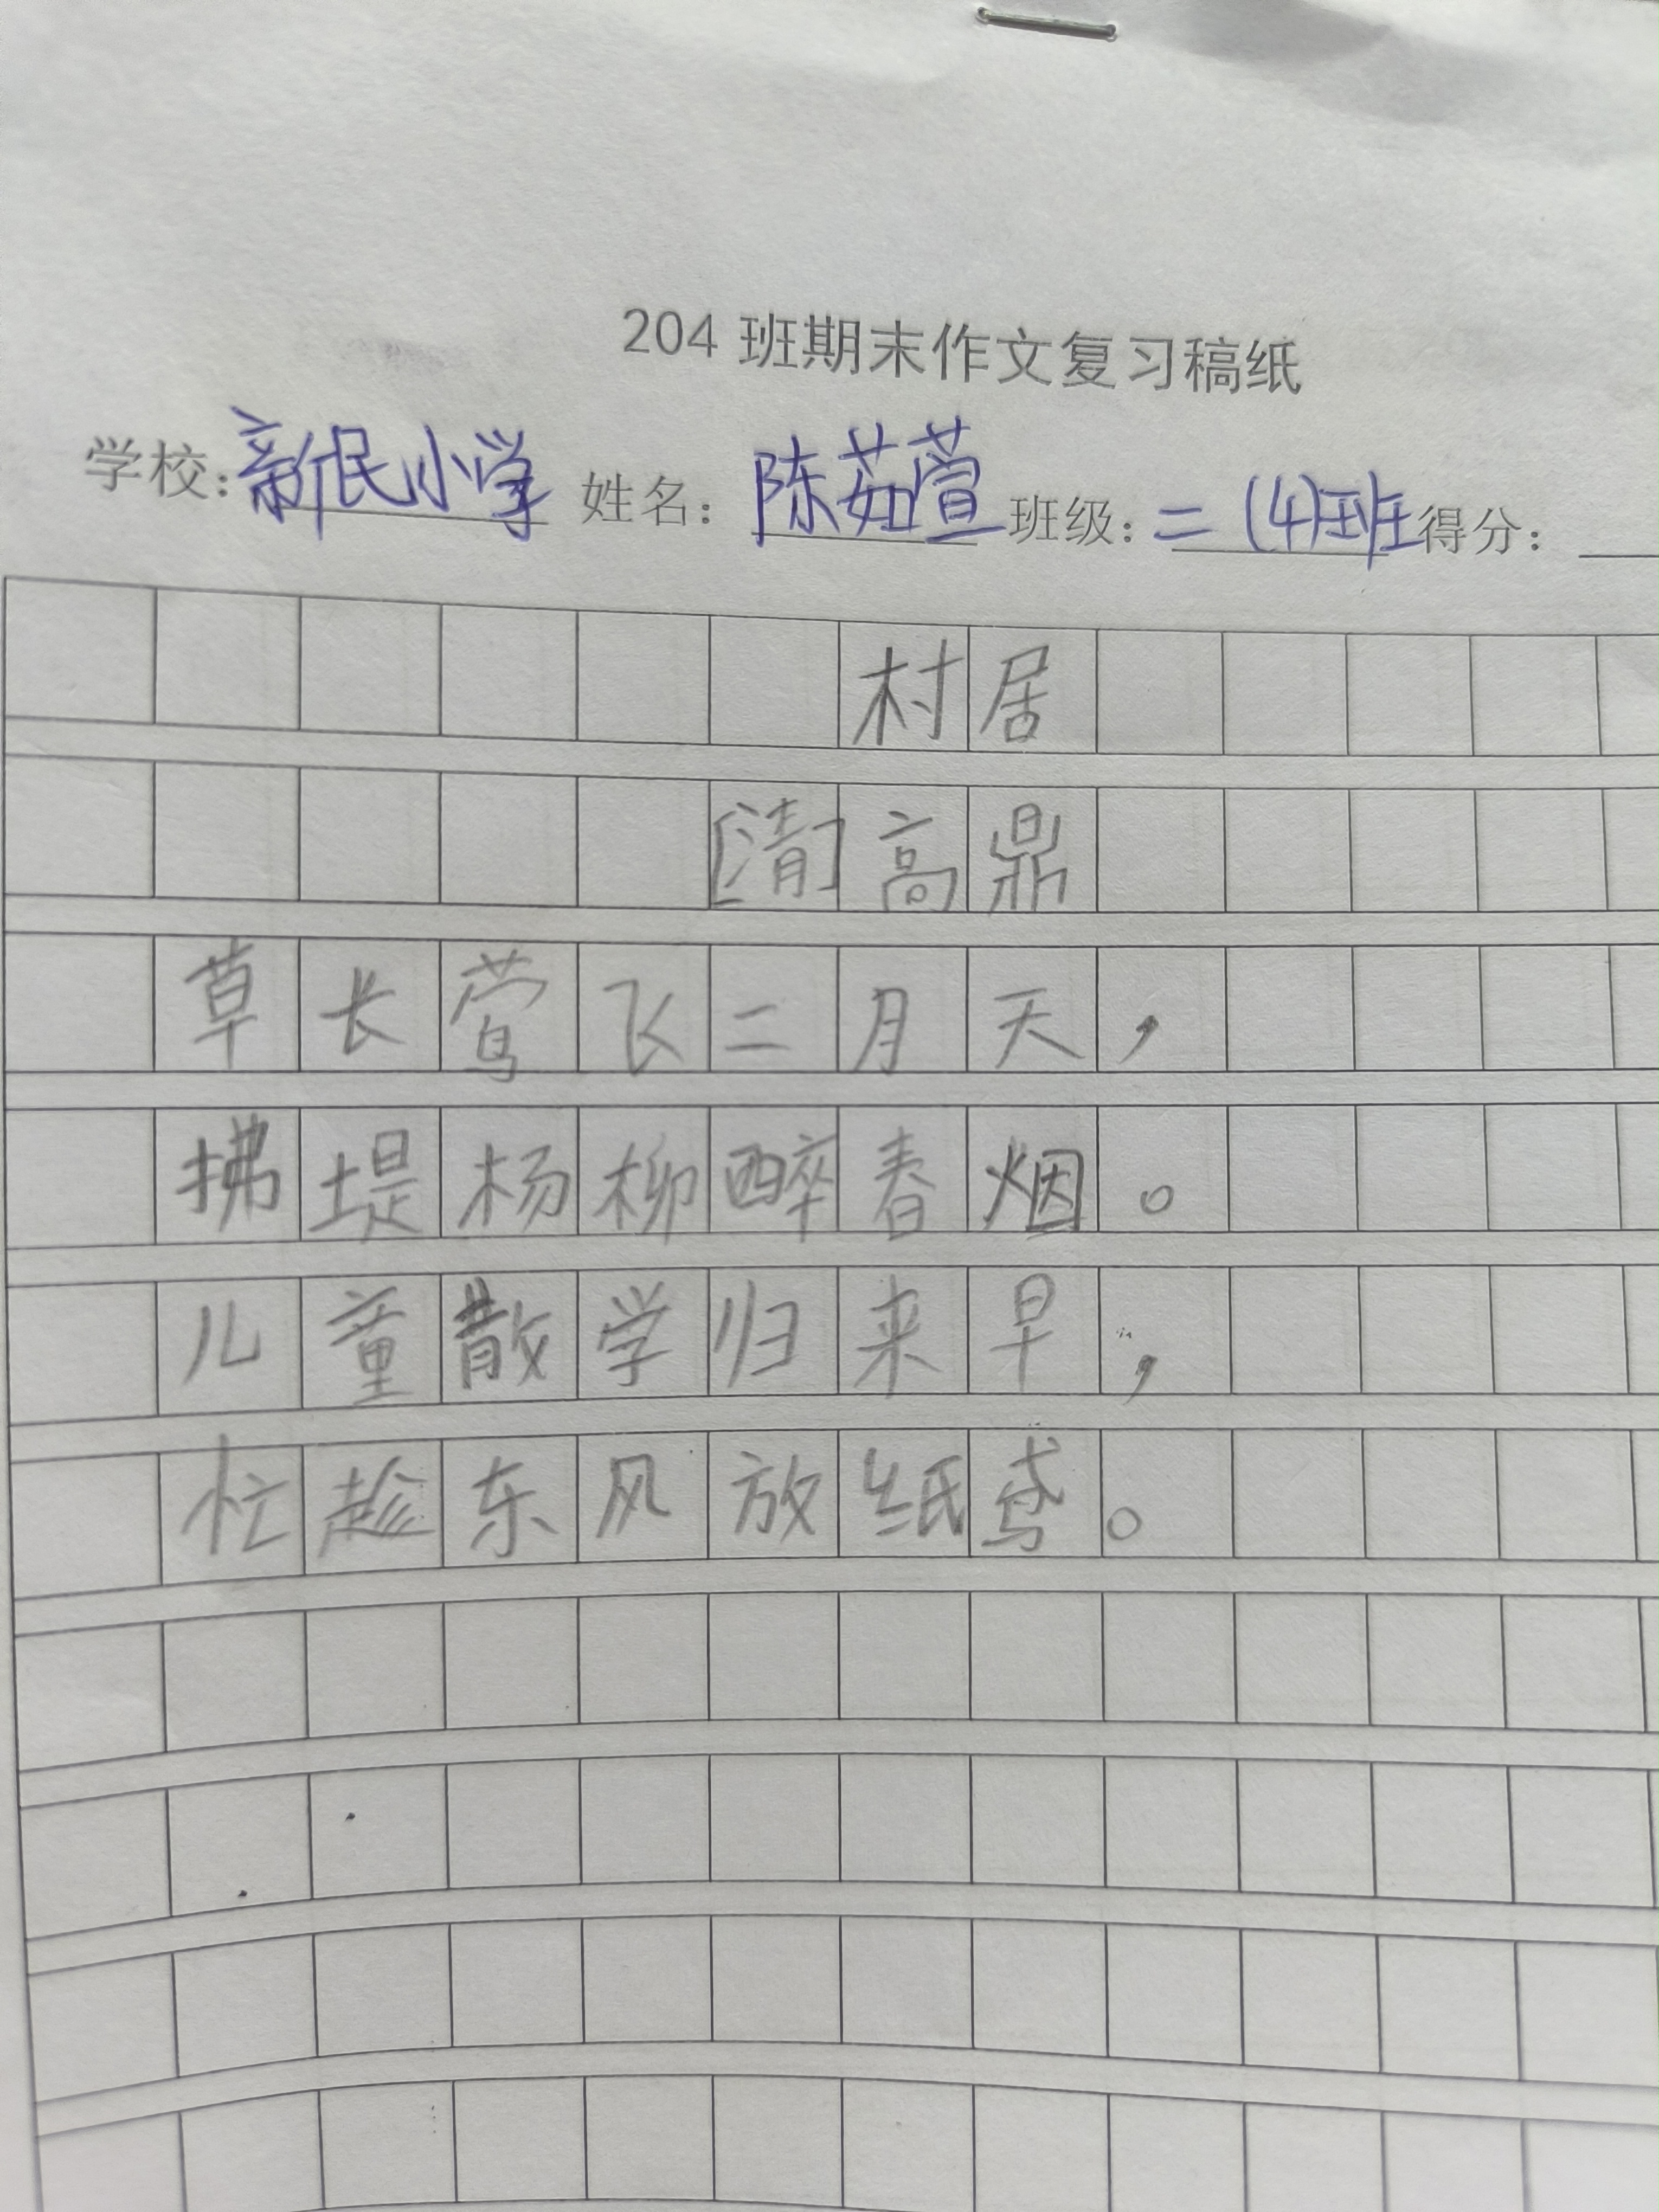 204 班期末作文复习稿纸
学校：新民小学 姓名：陈茹萱 班级：二（4）班 得分：
村居
[清]高鼎
草长莺飞二月天，
拂堤杨柳醉春烟。
儿童散学归来早，
忙趁东风放纸鸢。